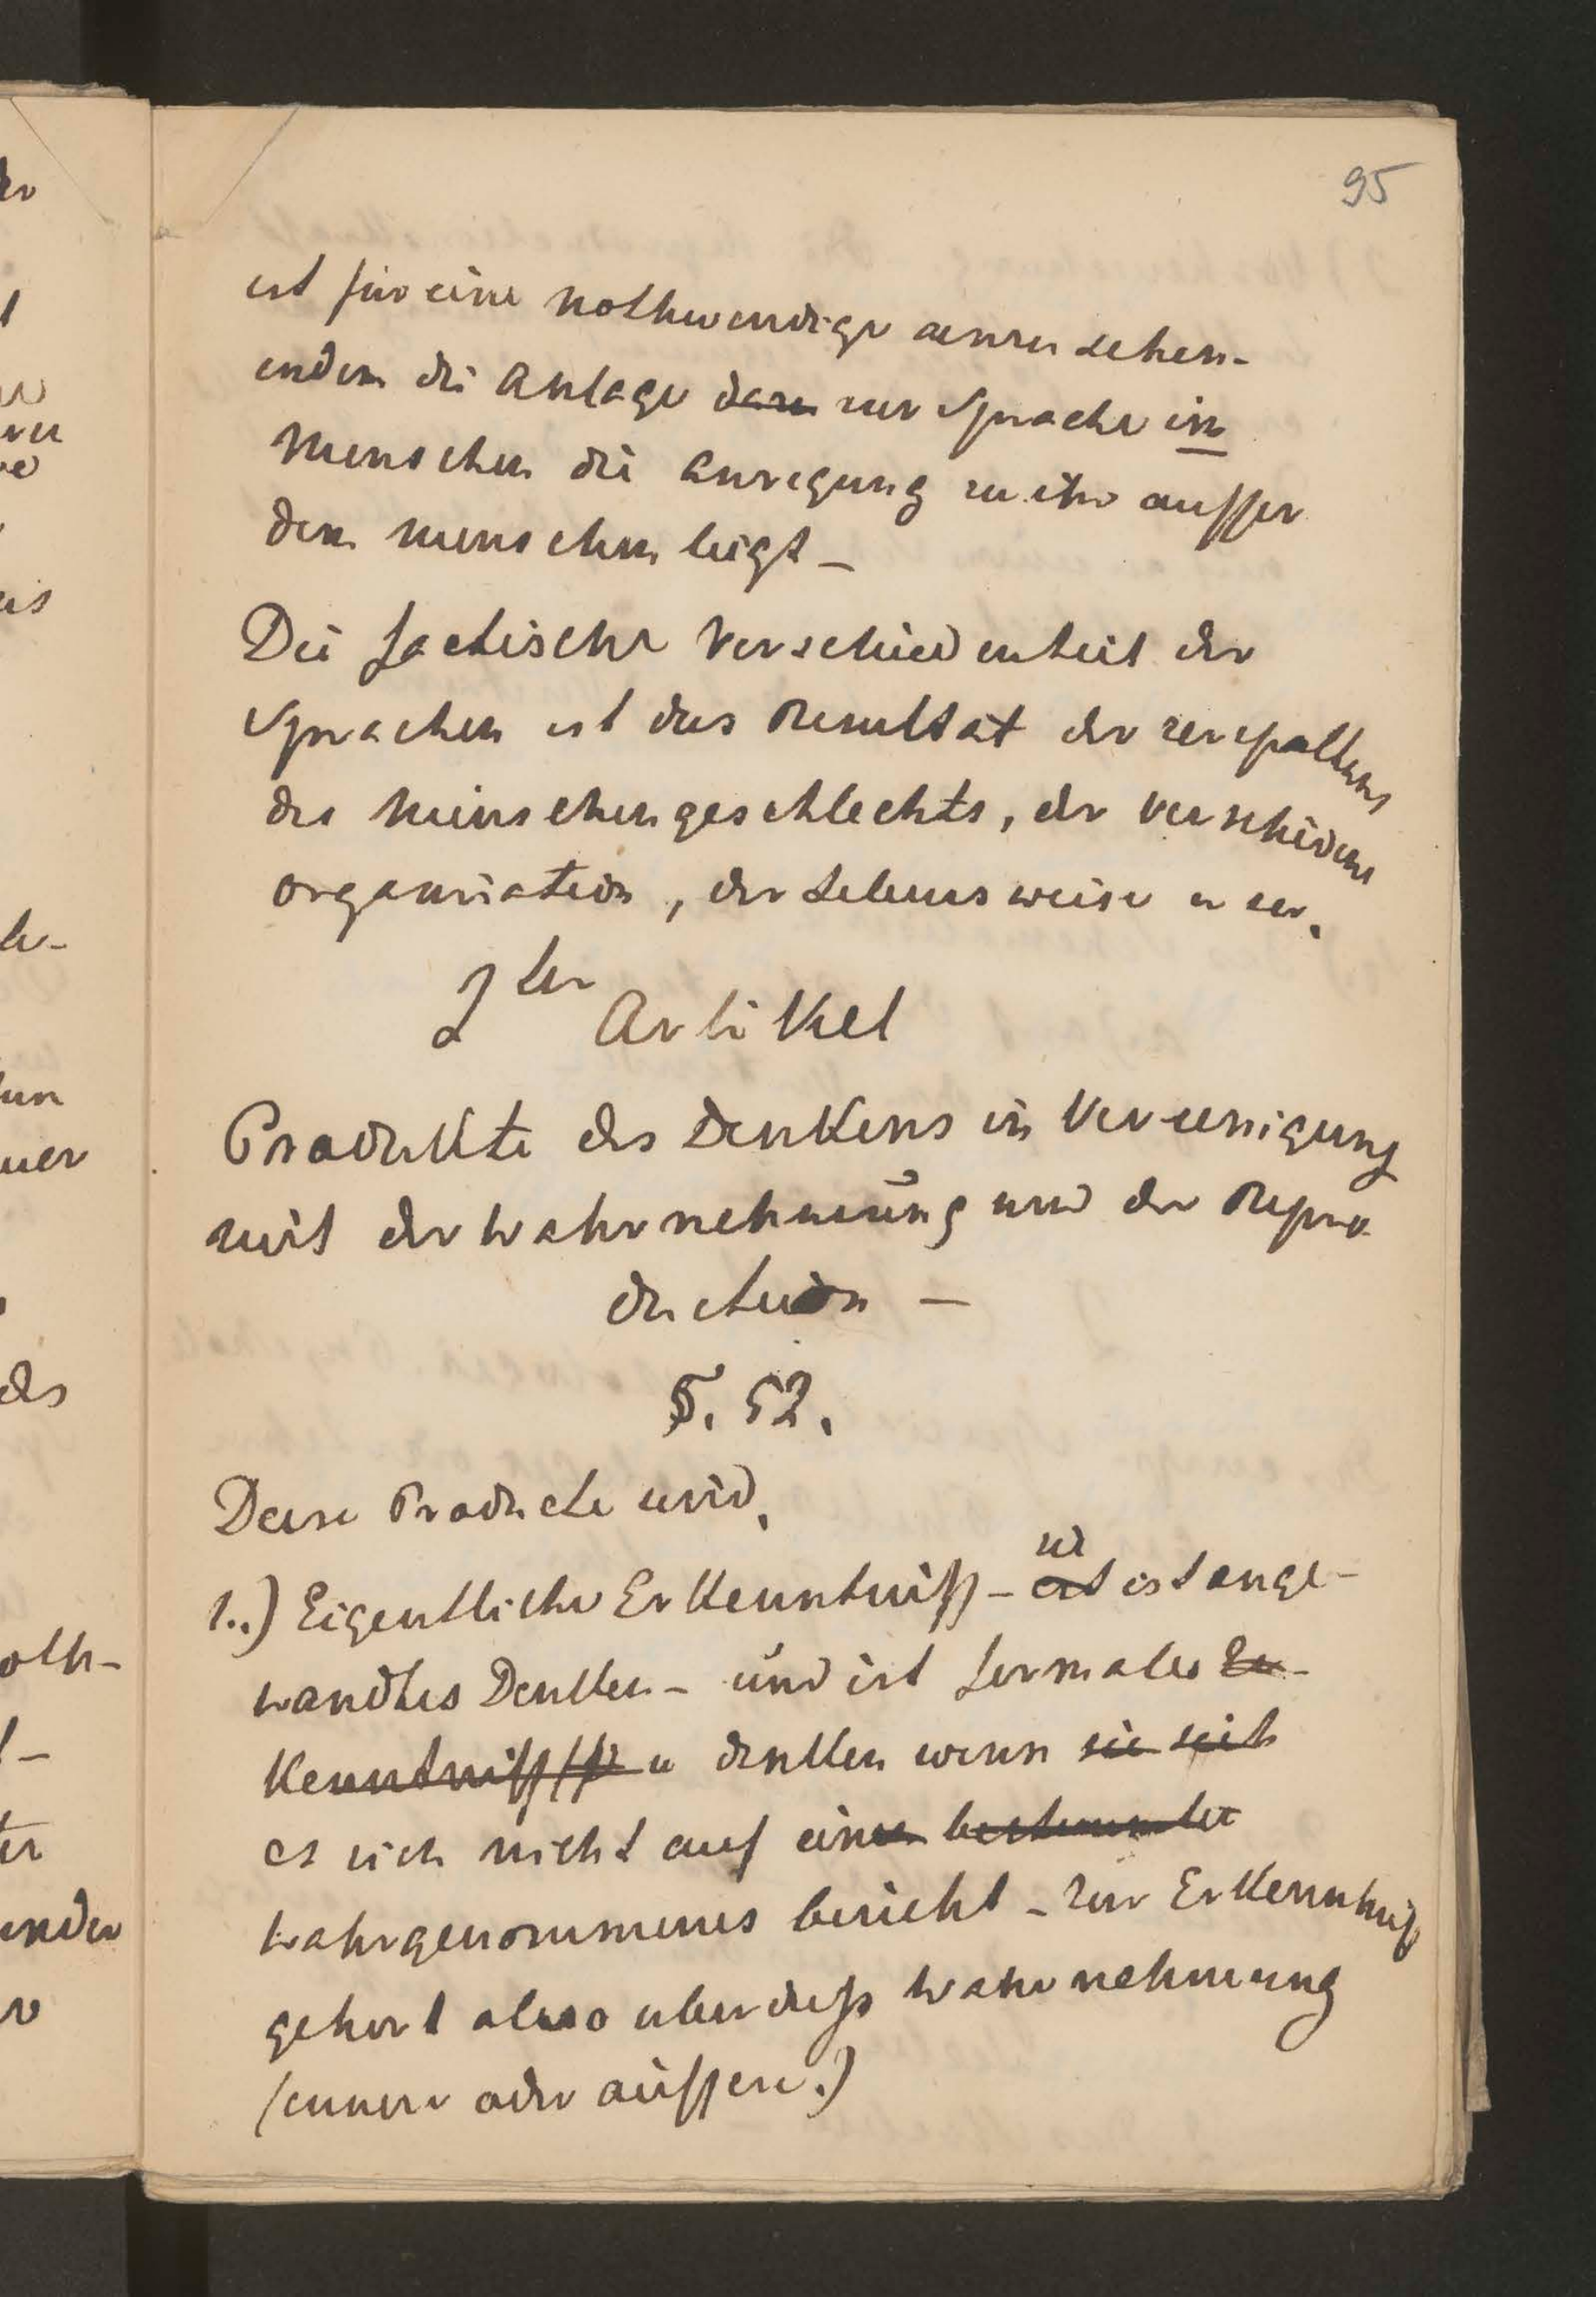 95
ist für eine nothwendige anzusehen-
indem die Anlage dazu zur Sprache in
Menschen die Anregung zu ihr ausser
dem Menschen liegt –
Die factische Verschiedenheit der
Sprachen ist das Resultat der zerspaltens
des Menschengeschlechts, der verschiedene
Organisation, der Lebensweise u
2ter Artikel
Produkte des Denkens in Vereinigung
mit der Wahrnehmung und der Repro
duction –
§. 52.
Diese Producte sind,
1..) Eigentliche Erkenntniss – ist ist ange-
wandtes Denken – und ist formales Er-
kenntniss u denken wenn sie sich
es sich nicht auf einen bestimmter
wahrgenommenes bezieht – zur Erkenntniß
gehort also uberdieß Wahrnehmung
(innere oder äussere.)